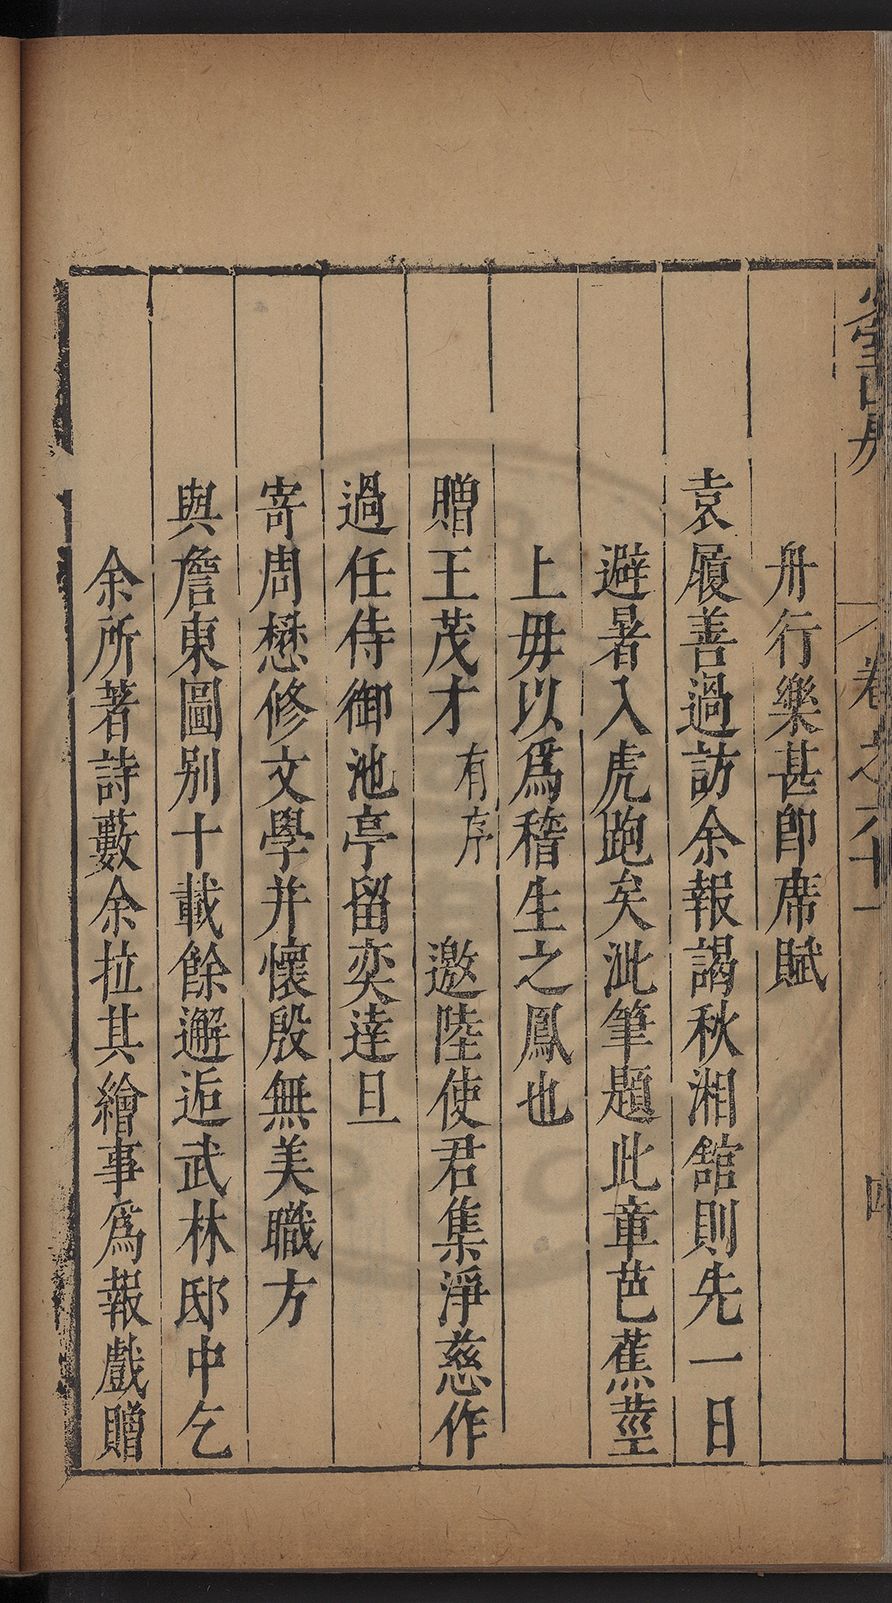 卷之六十一
四
舟行樂甚卽席賦
袁履善過訪余報謁秋湘舘則先一日
避暑入虎跑矣泚筆題此章芭蕉莖
上毋以爲稽生之鳳也
贈王茂才 有序 邀陸使君集淨慈作
過任侍御池亭留奕達旦
寄周懋修文學并懷殷無美職方
與詹東圖別十載餘邂逅武林邸中乞
余所著詩藪余拉其繪事爲報戲贈